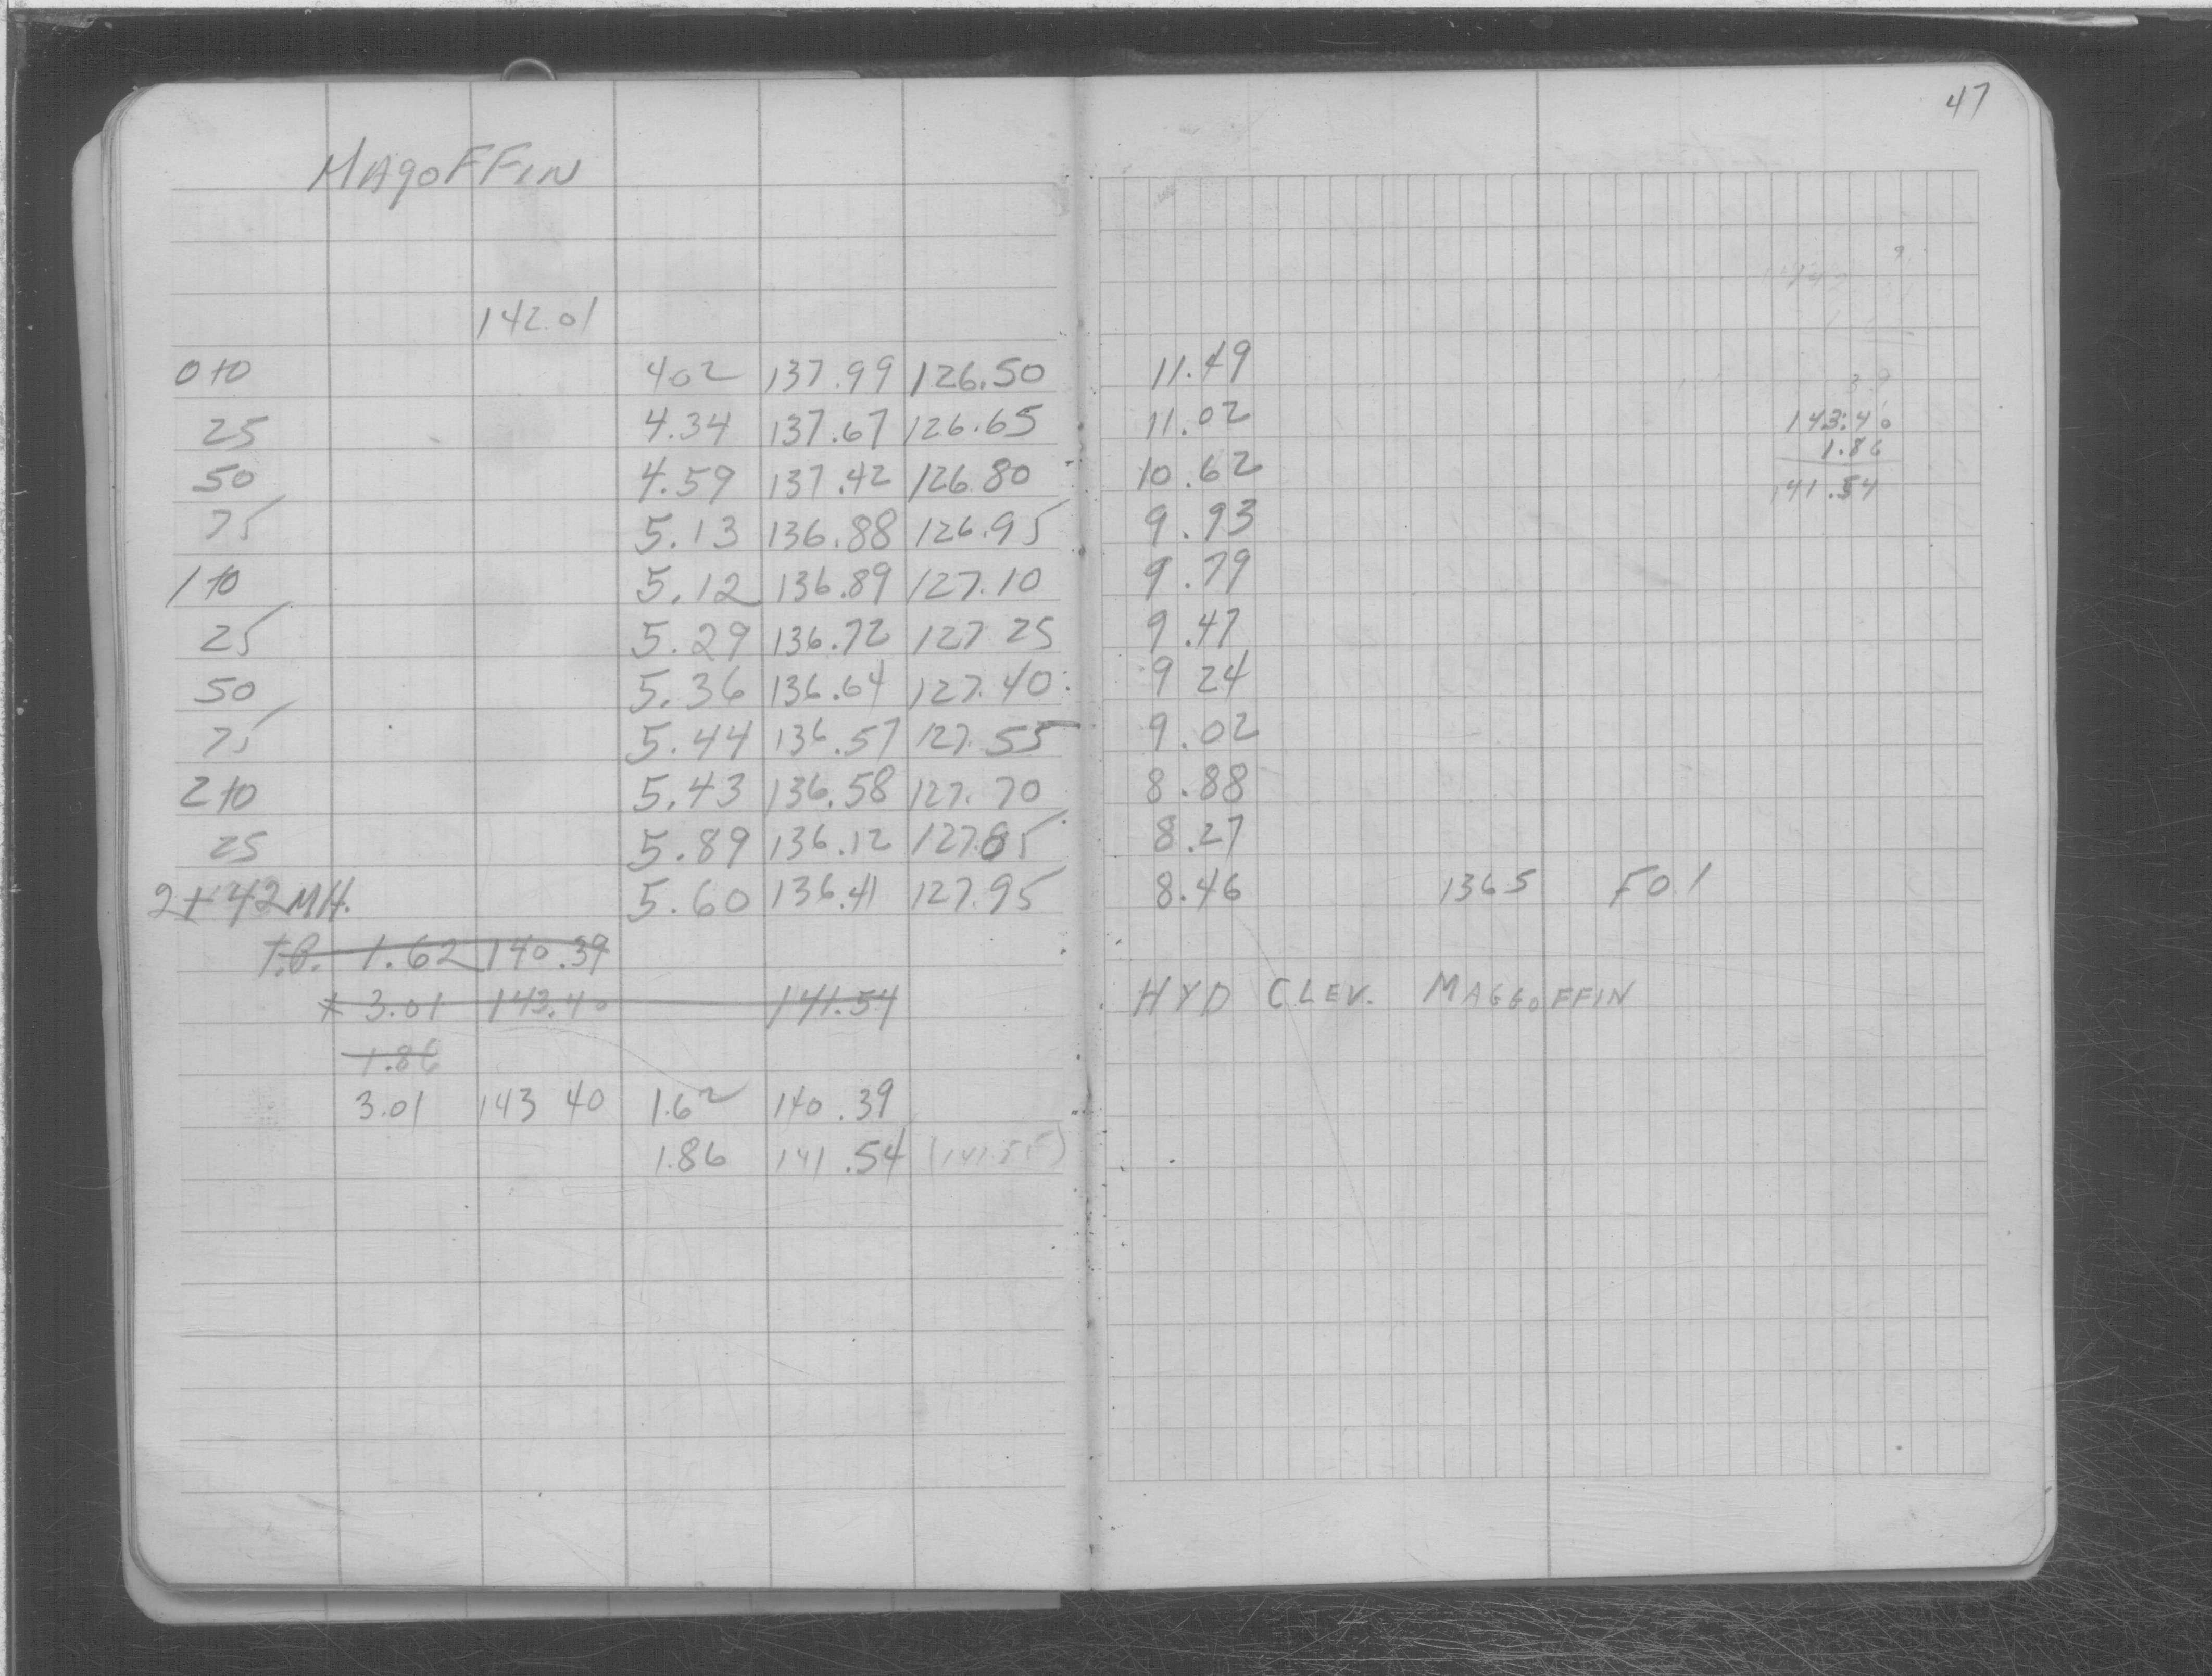 47
MAgoFFIN
142.01
0+0 4.02 137.99 126.50 11.49
25 4.34 137.67 126.65 11.02
50 4.59 137.42 126.80 10.62
75 5.13 136.88 126.95 9.93
1+0 5.12 136.89 127.10 9.79
25 5.29 136.72 127.25 9.47
50 5.36 136.64 127.40 9 24
75 5.44 136.57 127.55 9.02
2+0 5.43 136.58 127.70 8.88
25 5.89 136.12 127.85 8.27
2+42 MH. 5.60 136.41 127.95 8.46 136 5 F0.1
T.B. 1.62 140.39
+ 3.01 143.40 141.54 HYD CLEV. MAGGOFFIN
1.86
3.01 143 40 1.62 140.39
1.86 141.54 (141.55)
143.40
1.86
141.54